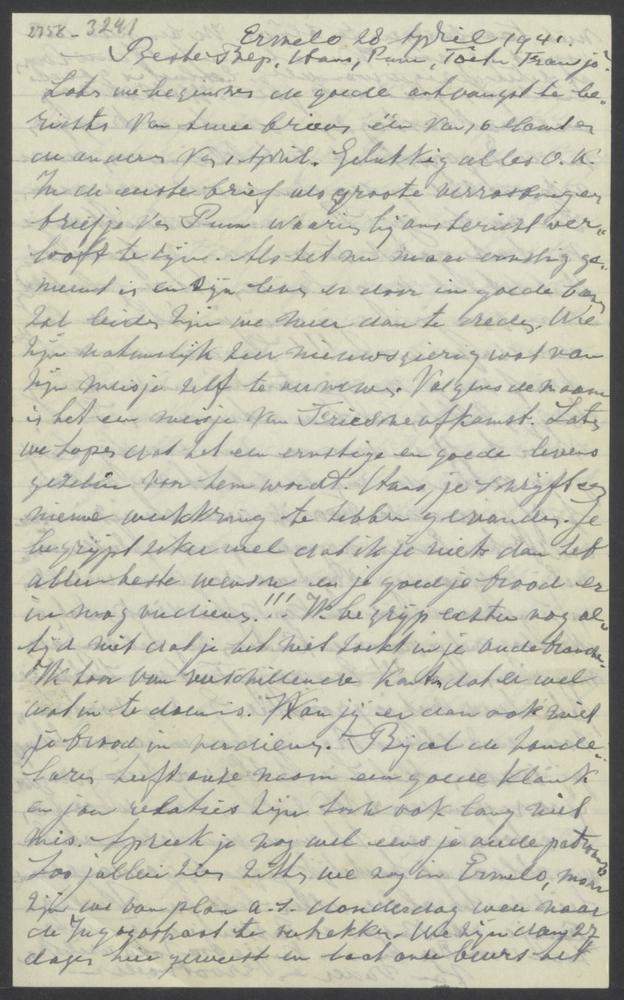 2758-3241
Ermelo 28 April 1941.
Beste Bep, Hans, Pum, Toetie Fransje?
Laten we beginnen de goede ontvangst te be-
richten van twee brieven één van 16 Maart en
de andere van 1 April. Gelukkig alles O.K.
In de eerste brief als groote verrassing een
briefje van Pum waarin hij ons bericht ver-
looft te zijn. Als het nu maar ernstig ge-
meend is en zijn leven er door in goede banen
zal leiden zijn we meer dan te vreden. We
zijn natuurlijk zeer nieuwsgierig wat van
zijn meisje zelf te vernemen. Volgens de naam
is het een meisje van Friesche afkomst. Laten
we hopen dat het een ernstige en goede levens
gezellin voor hem wordt. Hans, je schrijft een
nieuwe werkkring te hebben gevonden. Je
begrijpt zeker wel dat ik je niets dan het
allerbeste wensch en je goed je brood er
in mag verdienen!!! Ik begrijp echter nog al-
tijd niet dat je het niet zoekt in je oude branche.
Ik hoor van verschillende kanten dat er wel
wat in te doen is. Kan jij er dan ook niet
je brood in verdienen. Bij al de
heeft onze naam een goede klank
en jou relaties zijn toch ook lang niet
mis. Spreek je nog wel eens je oude patroons
Zoo jullie zien zitten we nog in Ermelo, maar
zijn we van plan a.s. donderdag weer naar
de te vertrekken. We zijn dan 27
dagen hier geweest en laat onze beurs het